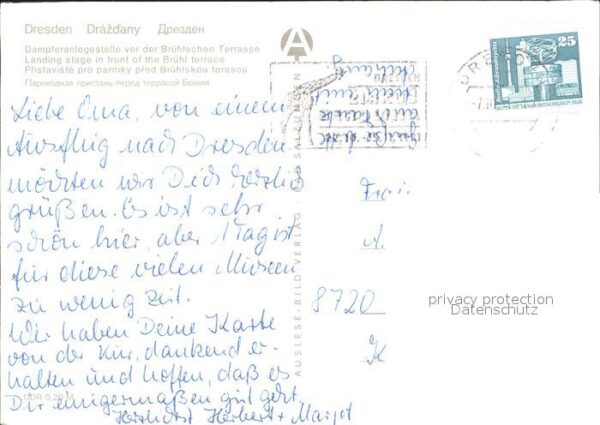 Dresden Drážďany Дрезден
Dampferanlegestelle vor der Brühlschen Terrasse
Landing stage in front of the Brühl terrace
Přístaviště pro parníky před Brühlskou terasou
Пароходная пристань перед террасой Брюля
A
25
Liebe Oma, von einem
Ausflug nach Dresden
möchten wir Dich herzlich
grüßen. Es ist sehr
schön hier, aber 1 Tag ist
für diese vielen Museen
zu wenig Zeit.
Wir haben Deine Karte
von der Kur, dankend er-
halten und hoffen, daß es
Dir einigermaßen gut geht.
Herzlichst Herbert + Margot
DDR 0,20 M
AUSLESE-BILD-VERLAG · BAD SALZUNGEN
DRESDEN
Frau
A.
8720
K
privacy protection
Datenschutz